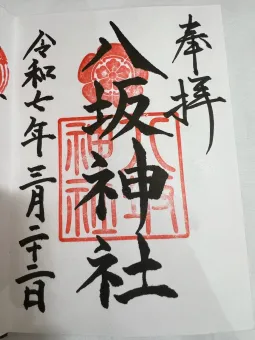 奉拝
八坂神社
令和七年三月二十二日
八坂
神社